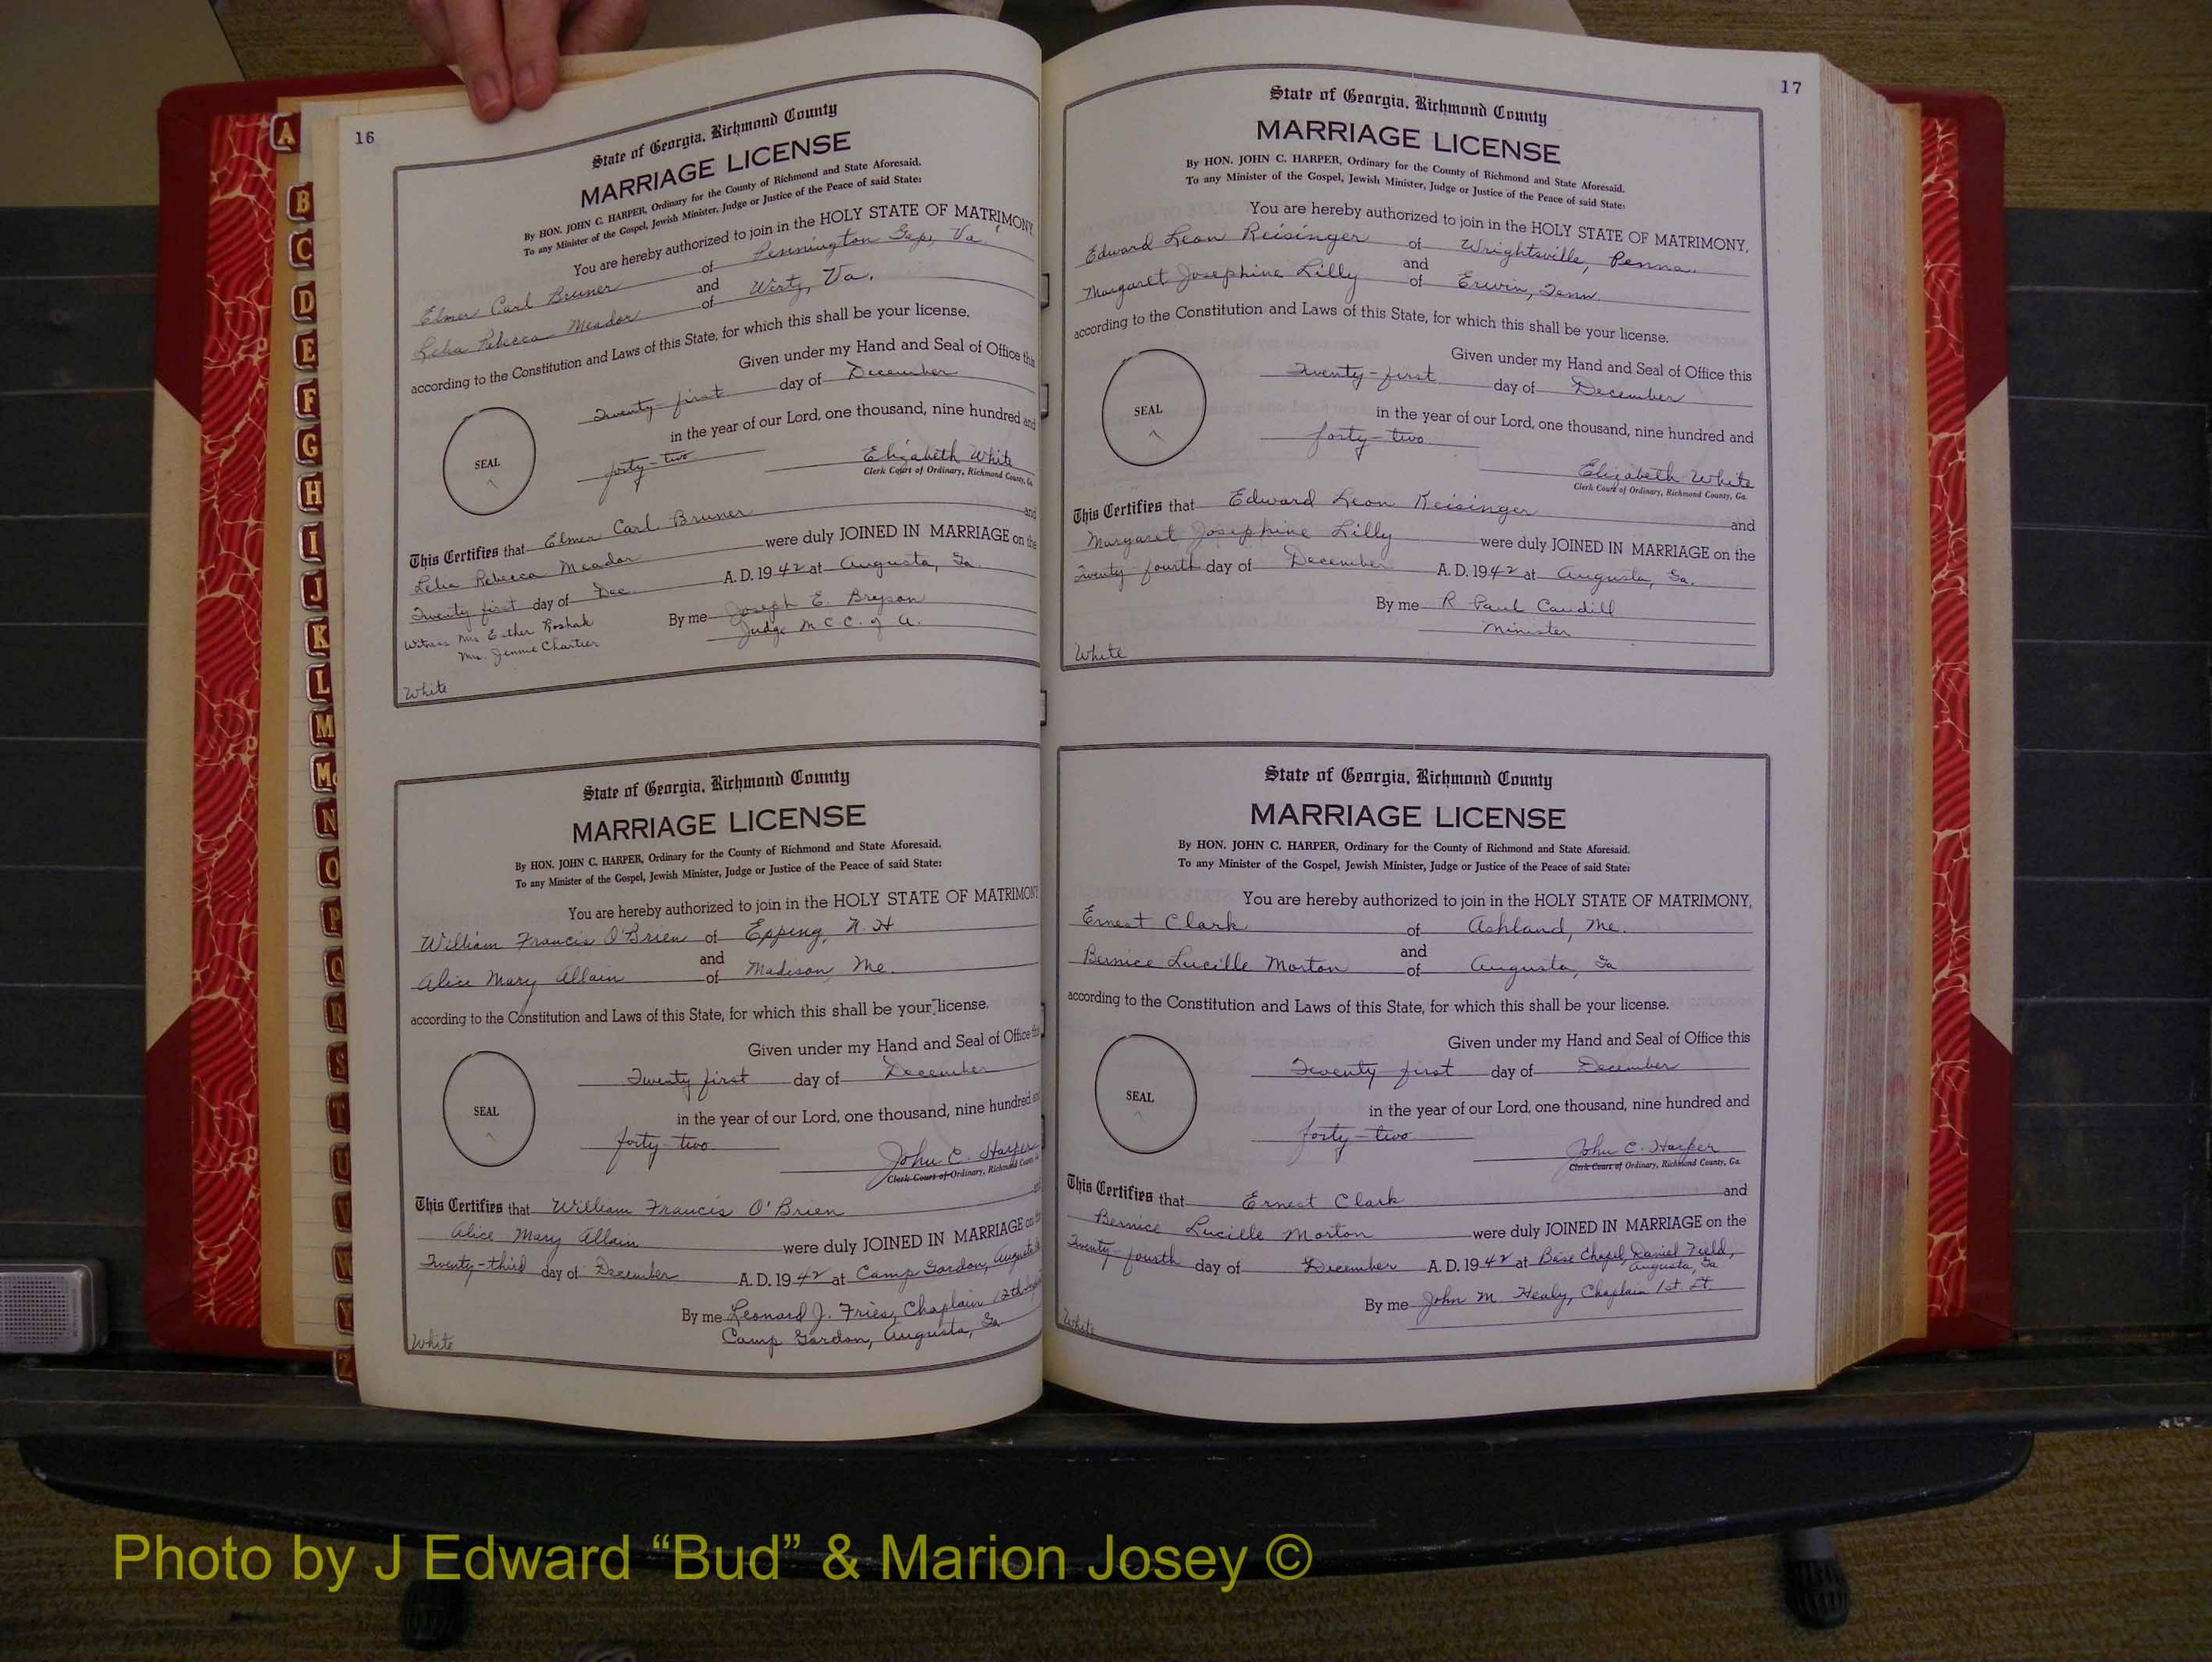 16
State of Georgia, Richmond County
MARRIAGE LICENSE
By HON. JOHN C. HARPER, Ordinary for the County of Richmond and State Aforesaid.
To any Minister of the Gospel, Jewish Minister, Judge or Justice of the Peace of said State:
You are hereby authorized to join in the HOLY STATE OF MATRIMONY,
Elmer Carl Bruner of Pennington Gap, Va.
and
Lelia Rebecca Meador of Wirtz, Va.
according to the Constitution and Laws of this State, for which this shall be your license.
Given under my Hand and Seal of Office this
Twenty-first day of December
in the year of our Lord, one thousand, nine hundred and
SEAL
forty-two
Elizabeth White
Clerk Court of Ordinary, Richmond County, Ga.
This Certifies that Elmer Carl Bruner and
Lelia Rebecca Meador were duly JOINED IN MARRIAGE on the
Twenty first day of Dec. A. D. 1942 at Augusta, Ga.
Witness Mrs Esther Roshak
Mrs. Jennie Chartier
By me Joseph E. Bryson
Judge M C C. of A.
White
State of Georgia, Richmond County
MARRIAGE LICENSE
By HON. JOHN C. HARPER, Ordinary for the County of Richmond and State Aforesaid.
To any Minister of the Gospel, Jewish Minister, Judge or Justice of the Peace of said State:
You are hereby authorized to join in the HOLY STATE OF MATRIMONY
William Francis O'Brien of Epping, N. H
and
Alice Mary Allain of Madison, Me.
according to the Constitution and Laws of this State, for which this shall be your license.
Given under my Hand and Seal of Office this
Twenty first day of December
in the year of our Lord, one thousand, nine hundred and
SEAL
forty-two
John C. Harper
Clerk Court of Ordinary, Richmond County
This Certifies that William Francis O'Brien
Alice Mary Allain were duly JOINED IN MARRIAGE on
Twenty-third day of December A. D. 1942 at Camp Gordon, Augusta
By me Leonard J. Fries, Chaplain 12th
Camp Gordon, Augusta, Ga
White
17
State of Georgia, Richmond County
MARRIAGE LICENSE
By HON. JOHN C. HARPER, Ordinary for the County of Richmond and State Aforesaid.
To any Minister of the Gospel, Jewish Minister, Judge or Justice of the Peace of said State:
You are hereby authorized to join in the HOLY STATE OF MATRIMONY,
Edward Leon Reisinger of Wrightsville, Penna.
and
Margaret Josephine Lilly of Erwin, Tenn.
according to the Constitution and Laws of this State, for which this shall be your license.
Given under my Hand and Seal of Office this
Twenty-first day of December
in the year of our Lord, one thousand, nine hundred and
SEAL
forty-two
Elizabeth White
Clerk Court of Ordinary, Richmond County, Ga.
This Certifies that Edward Leon Reisinger and
Margaret Josephine Lilly were duly JOINED IN MARRIAGE on the
Twenty fourth day of December A. D. 1942 at Augusta, Ga.
By me R Paul Caudill
Minister
White
State of Georgia, Richmond County
MARRIAGE LICENSE
By HON. JOHN C. HARPER, Ordinary for the County of Richmond and State Aforesaid.
To any Minister of the Gospel, Jewish Minister, Judge or Justice of the Peace of said State:
You are hereby authorized to join in the HOLY STATE OF MATRIMONY,
Ernest Clark of Ashland, Me.
and
Bernice Lucille Morton of Augusta, Ga
according to the Constitution and Laws of this State, for which this shall be your license.
Given under my Hand and Seal of Office this
Twenty first day of December
in the year of our Lord, one thousand, nine hundred and
SEAL
forty-two
John C. Harper
Clerk Court of Ordinary, Richmond County, Ga.
This Certifies that Ernest Clark and
Bernice Lucille Morton were duly JOINED IN MARRIAGE on the
Twenty-fourth day of December A. D. 1942 at Base Chapel, Daniel Field,
Augusta, Ga
By me John M. Healy, Chaplain 1st. Lt.
White
A
B
C
D
E
F
G
H
I
J
K
L
M
Mc
N
O
P
Q
R
S
T
U
V
W
Y
Z
Photo by J Edward “Bud” & Marion Josey ©